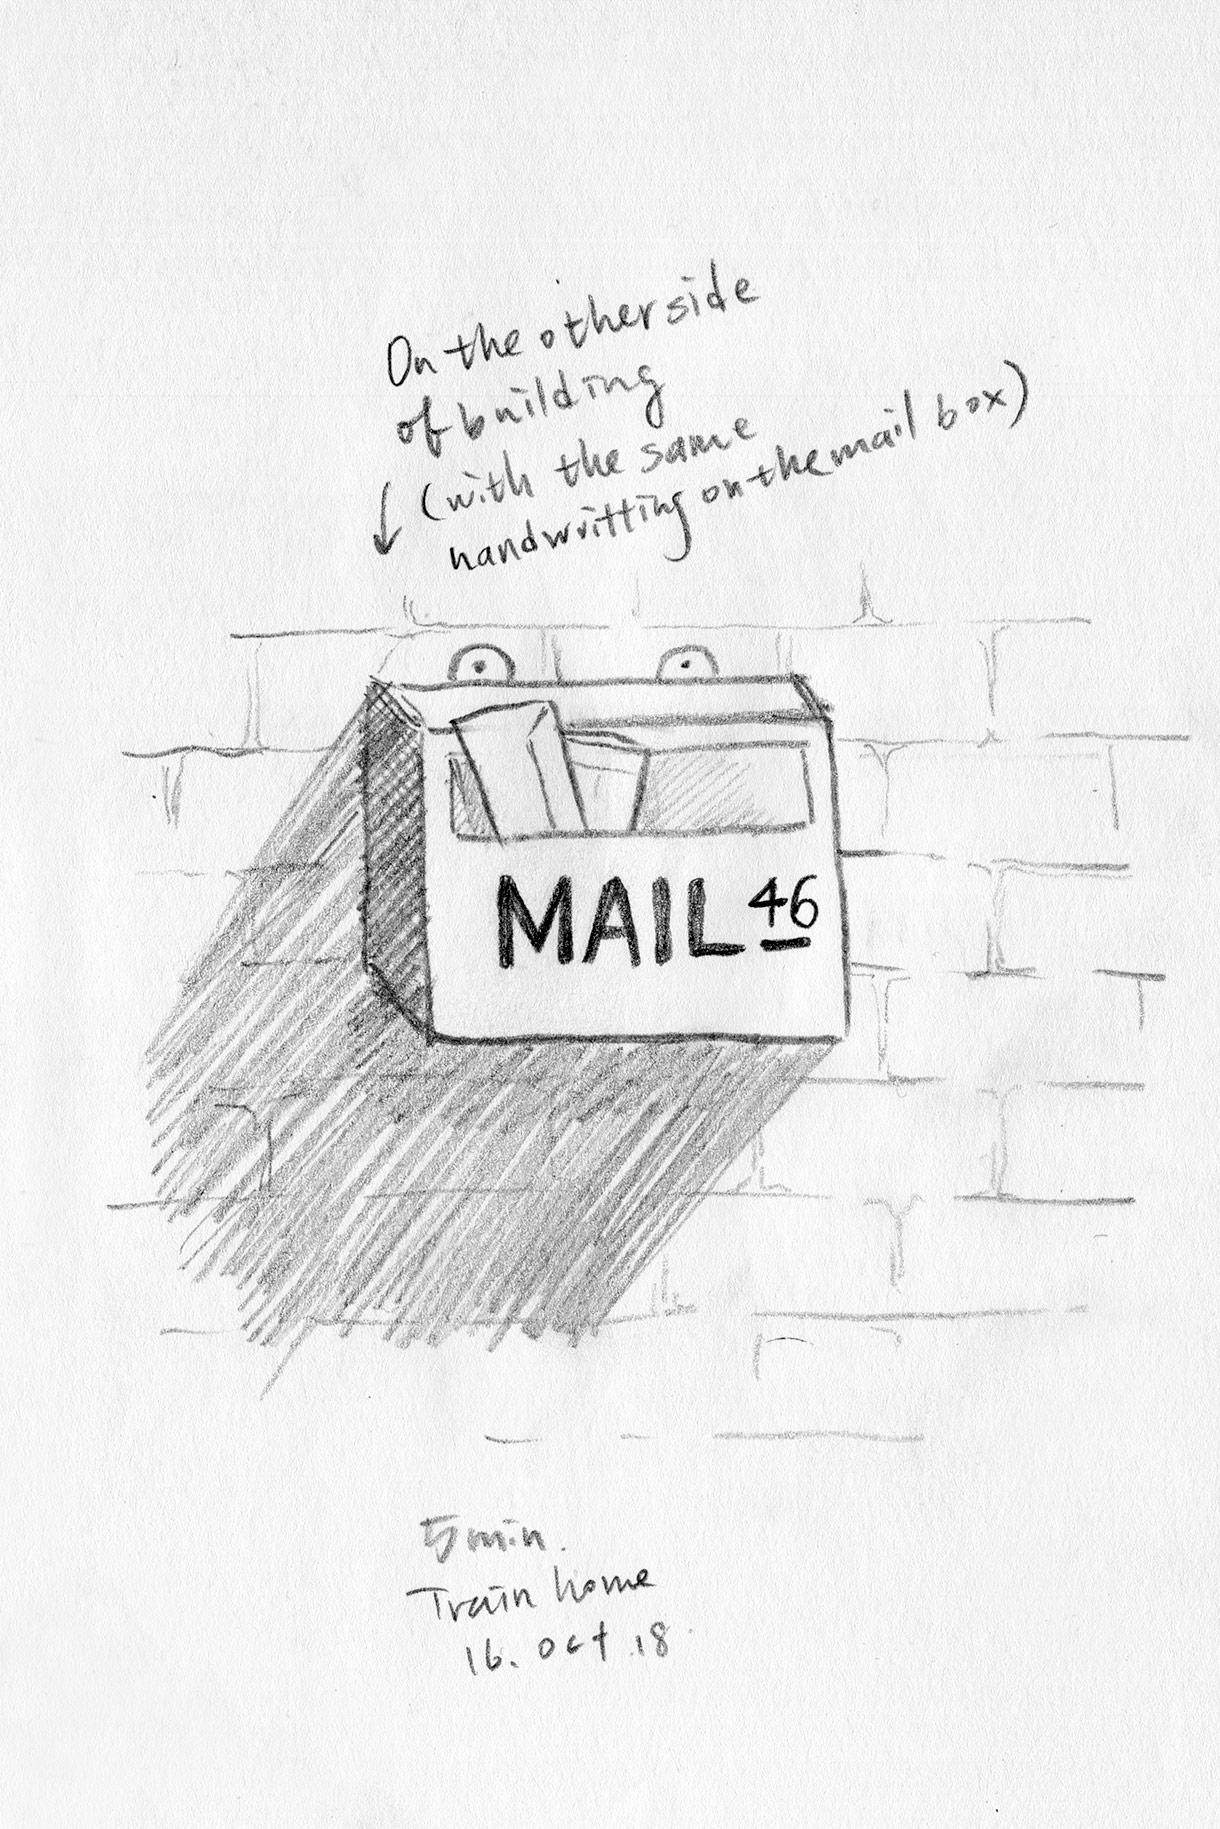 On the other side
of building
(with the same
handwritting on the mail box)
MAIL 46
5 min.
Train home
16. Oct .18.